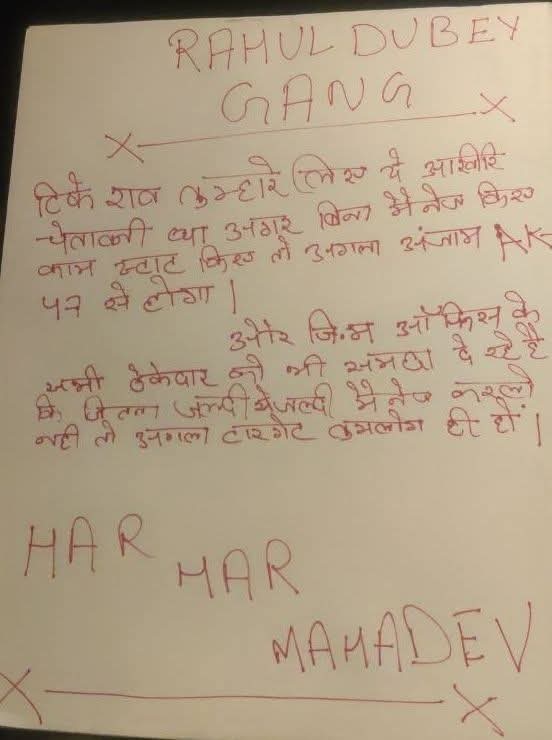 RAHUL DUBEY
GANG
टिके राज तुम्हारे लिए ये आखीरि
चेतावनी था अगर बिना मैनेज किए
काम स्टार्ट किए तो अगला अंजाम AK-
47 से होगा |
और जिनम ऑफिस के
सभी ठेकेदार को भी समझा दे रहे है
कि जितना जल्दी से जल्दी मैनेज करलो
नही तो अगला टारगेट तुमलोग ही हों |
HAR
HAR
MAHADEV